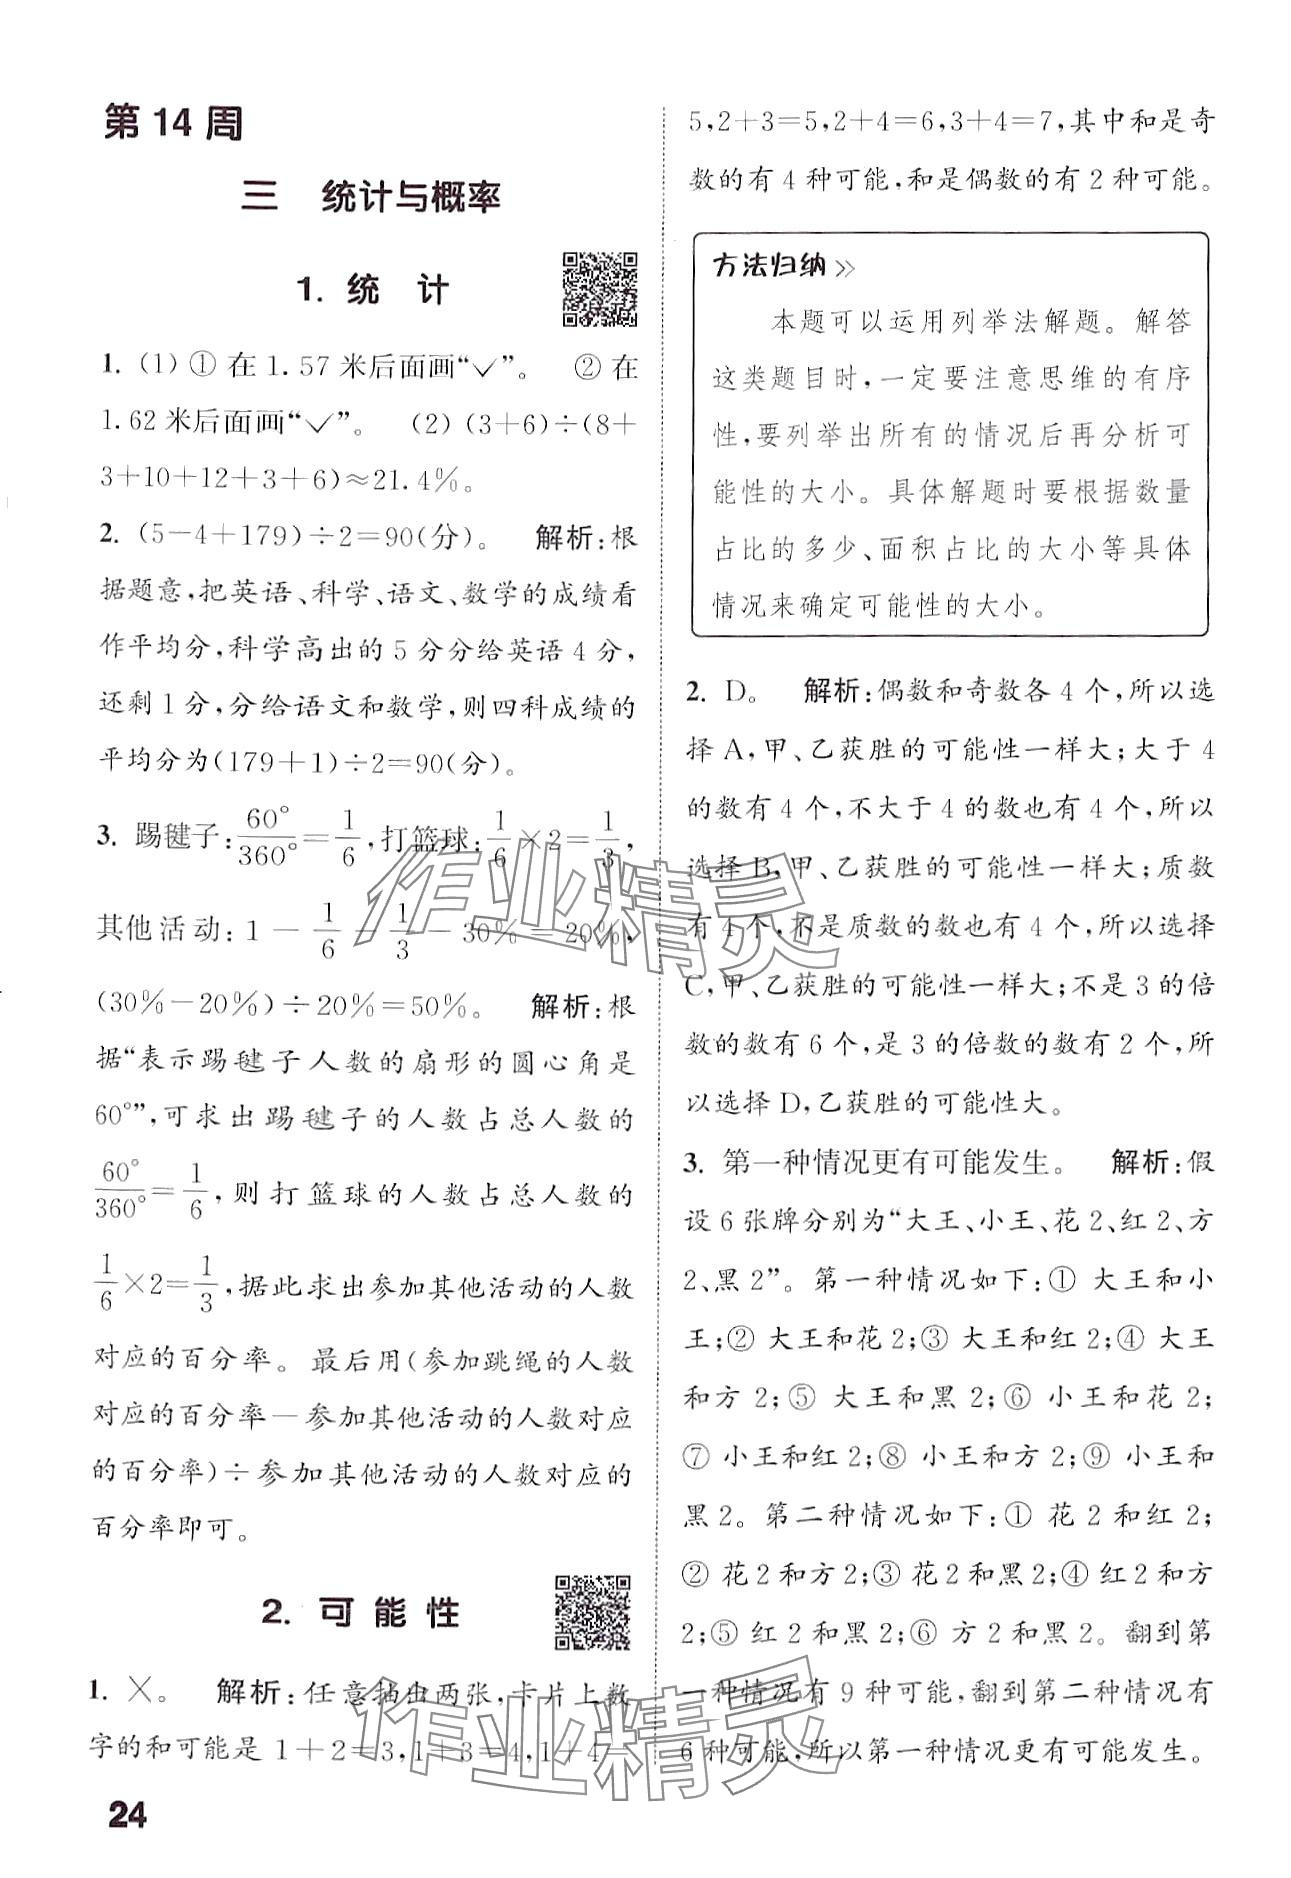 第14周
三　统计与概率
1. 统　计
1. (1) ① 在 1.57 米后面画“✓”。　② 在
1.62 米后面画“✓”。　(2) (3+6)÷(8+
3+10+12+3+6)≈21.4%。
2. (5-4+179)÷2=90(分)。　解析:根
据题意,把英语、科学、语文、数学的成绩看
作平均分,科学高出的 5 分分给英语 4 分,
还剩 1 分,分给语文和数学,则四科成绩的
平均分为(179+1)÷2=90(分)。
3. 踢毽子:60°/360°=1/6,打篮球:1/6×2=1/3,
其他活动:1-1/6-1/3-30%=20%,
(30%-20%)÷20%=50%。　解析:根
据“表示踢毽子人数的扇形的圆心角是
60°”,可求出踢毽子的人数占总人数的
60°/360°=1/6,则打篮球的人数占总人数的
1/6×2=1/3,据此求出参加其他活动的人数
对应的百分率。最后用(参加跳绳的人数
对应的百分率-参加其他活动的人数对应
的百分率)÷参加其他活动的人数对应的
百分率即可。
2. 可能性
1. ×。　解析:任意抽出两张,卡片上数
字的和可能是 1+2=3,1+3=4,1+4=
24
5,2+3=5,2+4=6,3+4=7,其中和是奇
数的有 4 种可能,和是偶数的有 2 种可能。
方法归纳 »
本题可以运用列举法解题。解答
这类题目时,一定要注意思维的有序
性,要列举出所有的情况后再分析可
能性的大小。具体解题时要根据数量
占比的多少、面积占比的大小等具体
情况来确定可能性的大小。
2. D。　解析:偶数和奇数各 4 个,所以选
择 A,甲、乙获胜的可能性一样大;大于 4
的数有 4 个,不大于 4 的数也有 4 个,所以
选择 B,甲、乙获胜的可能性一样大;质数
有 4 个,不是质数的数也有 4 个,所以选择
C,甲、乙获胜的可能性一样大;不是 3 的倍
数的数有 6 个,是 3 的倍数的数有 2 个,所
以选择 D,乙获胜的可能性大。
3. 第一种情况更有可能发生。　解析:假
设 6 张牌分别为“大王、小王、花 2、红 2、方
2、黑 2”。第一种情况如下:① 大王和小
王;② 大王和花 2;③ 大王和红 2;④ 大王
和方 2;⑤ 大王和黑 2;⑥ 小王和花 2;
⑦ 小王和红 2;⑧ 小王和方 2;⑨ 小王和
黑 2。第二种情况如下:① 花 2 和红 2;
② 花 2 和方 2;③ 花 2 和黑 2;④ 红 2 和方
2;⑤ 红 2 和黑 2;⑥ 方 2 和黑 2。翻到第
一种情况有 9 种可能,翻到第二种情况有
6 种可能,所以第一种情况更有可能发生。
作业精灵
作业精灵